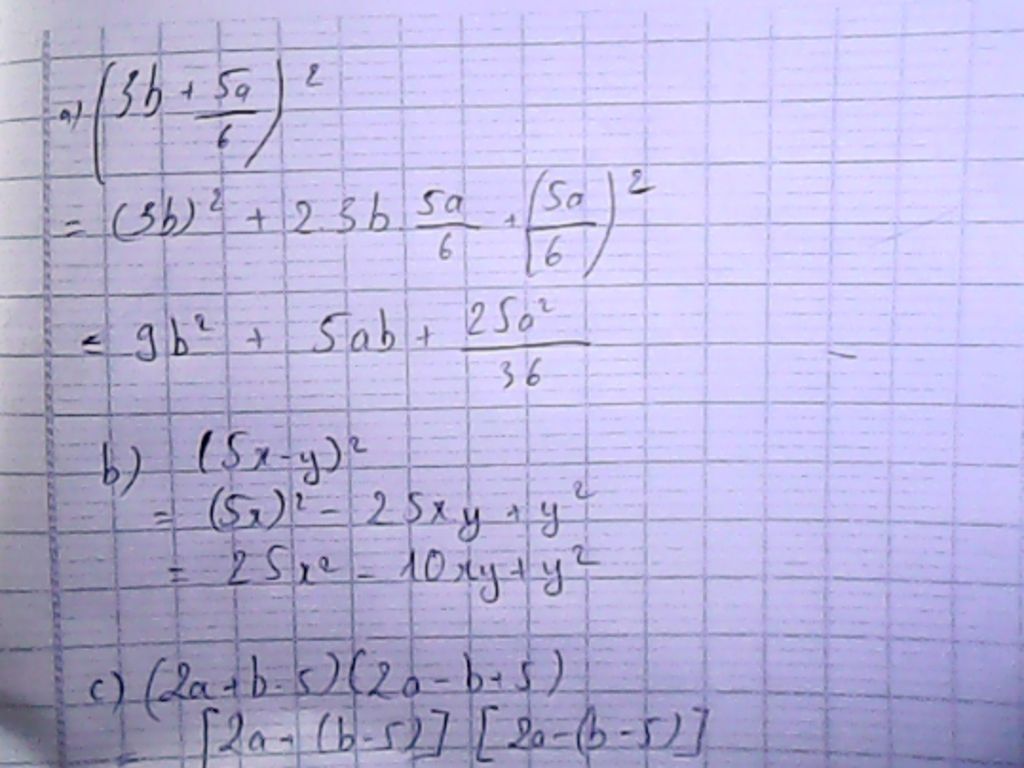 a) (3b + 5a/6)²
= (3b)² + 2.3b 5a/6 + (5a/6)²
= 9b² + 5ab + 25a²/36
b) (5x-y)²
= (5x)² - 2 5x y + y²
= 25x² - 10xy + y²
c) (2a+b-5)(2a-b+5)
= [2a+(b-5)] [2a-(b-5)]